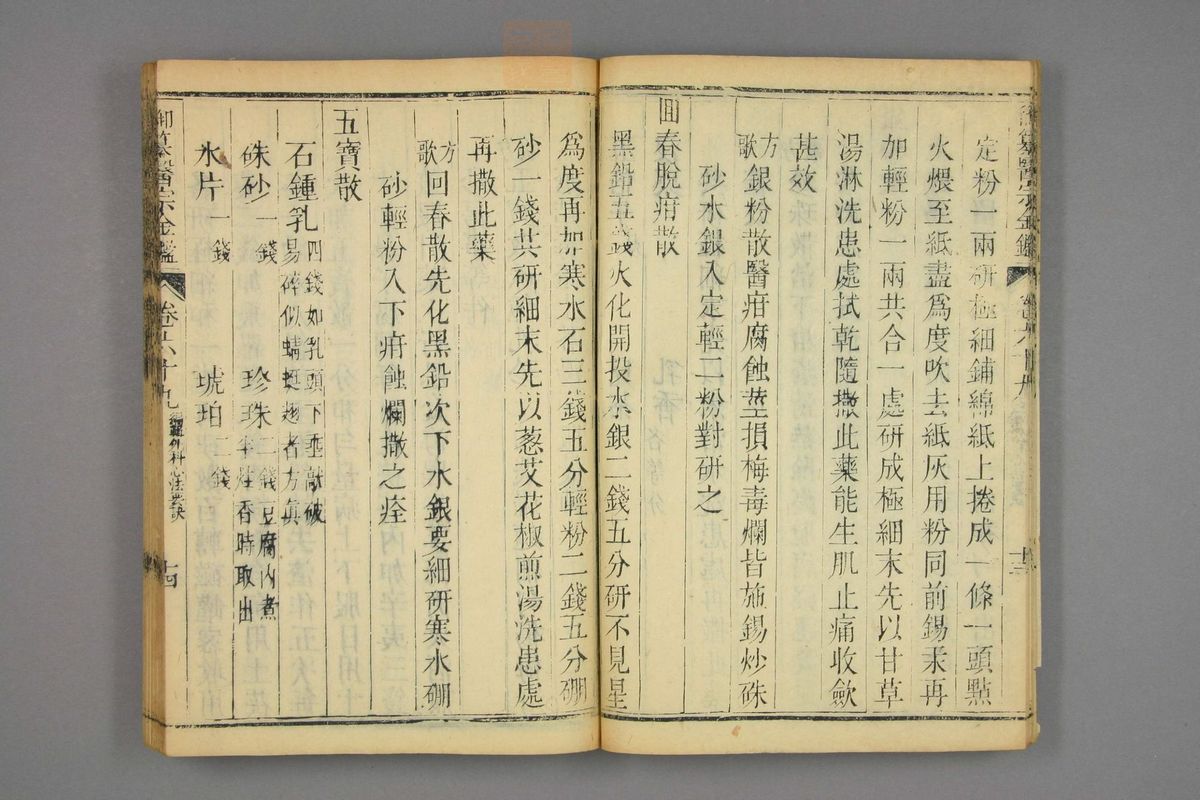 定粉一兩研極細鋪綿紙上捲成一條一頭點
火煨至紙盡爲度吹去紙灰用粉同前錫汞再
加輕粉一兩共合一處研成極細末先以甘草
湯淋洗患處拭乾隨撒此藥能生肌止痛收歛
甚效
方歌 銀粉散醫疳腐蝕莖損梅毒爛皆施錫炒硃
砂水銀入定輕二粉對研之
回春脫疳散
黑鉛五錢火化開投水銀二錢五分研不見星
爲度再加寒水石三錢五分輕粉二錢五分硼
砂一錢共研細末先以葱艾花椒煎湯洗患處
再撒此藥
方歌 回春散先化黑鉛次下水銀要細研寒水硼
砂輕粉入下疳蝕爛撒之痊
五寶散
石鍾乳 四錢如乳頭下垂敲破易碎似蜻蜓翅者方眞
硃砂 一錢 珍珠 二錢豆腐內煮半炷香時取出
氷片 一錢 琥珀 二錢
御纂醫宗金鑑 卷六十九 編輯外科心法要訣 十四